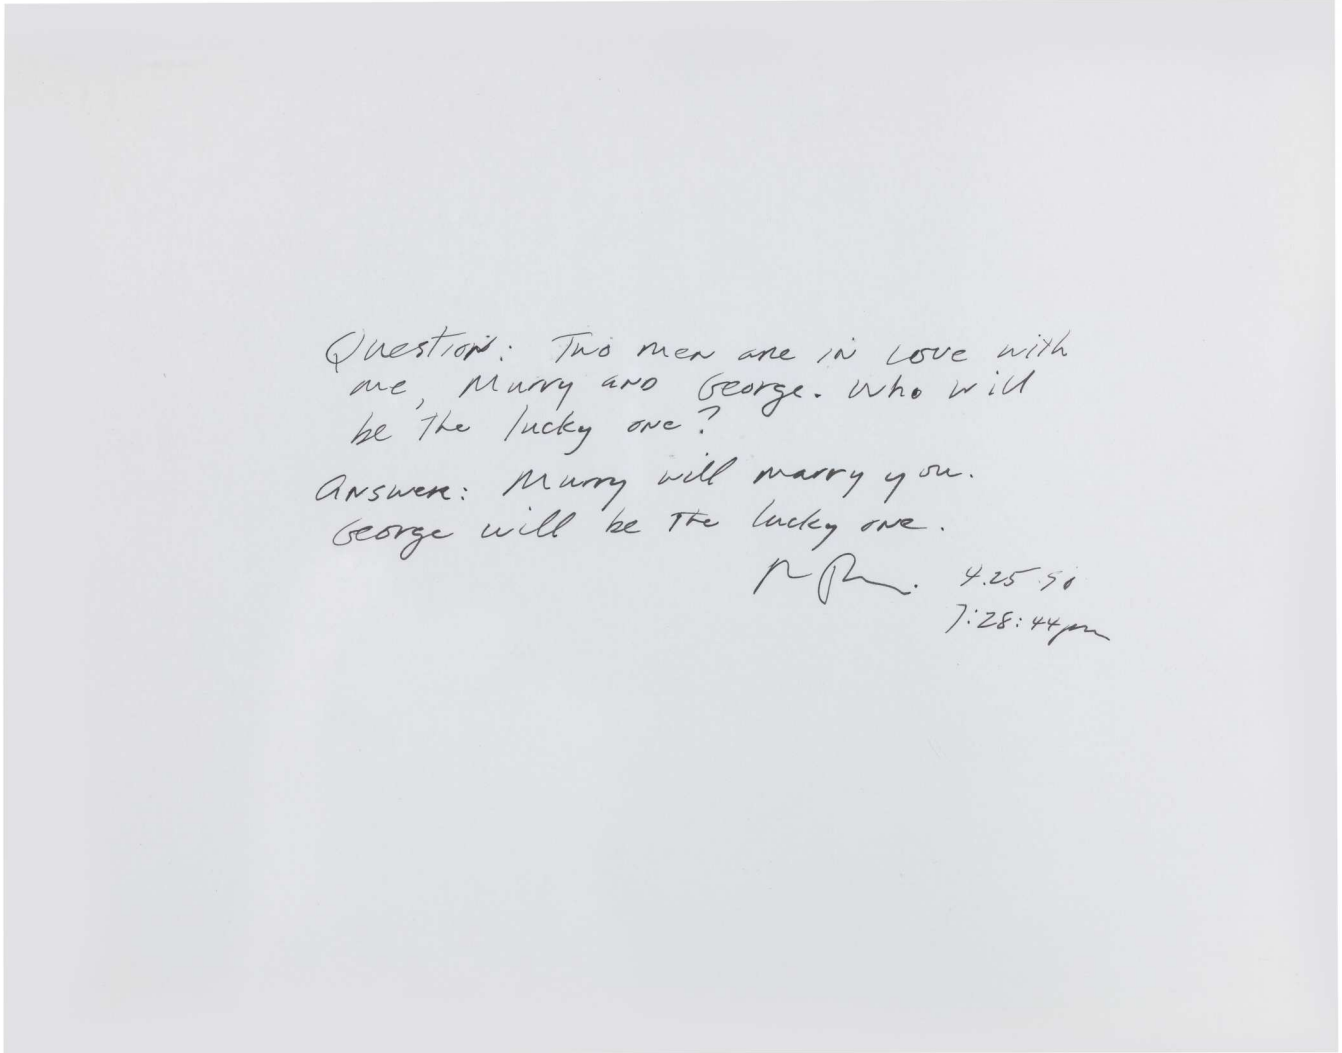 Question: Two men are in love with
me, Murry and George. Who will
be the lucky one?
Answer: Murry will marry you.
George will be the lucky one.
4.25.90
7:28:44pm